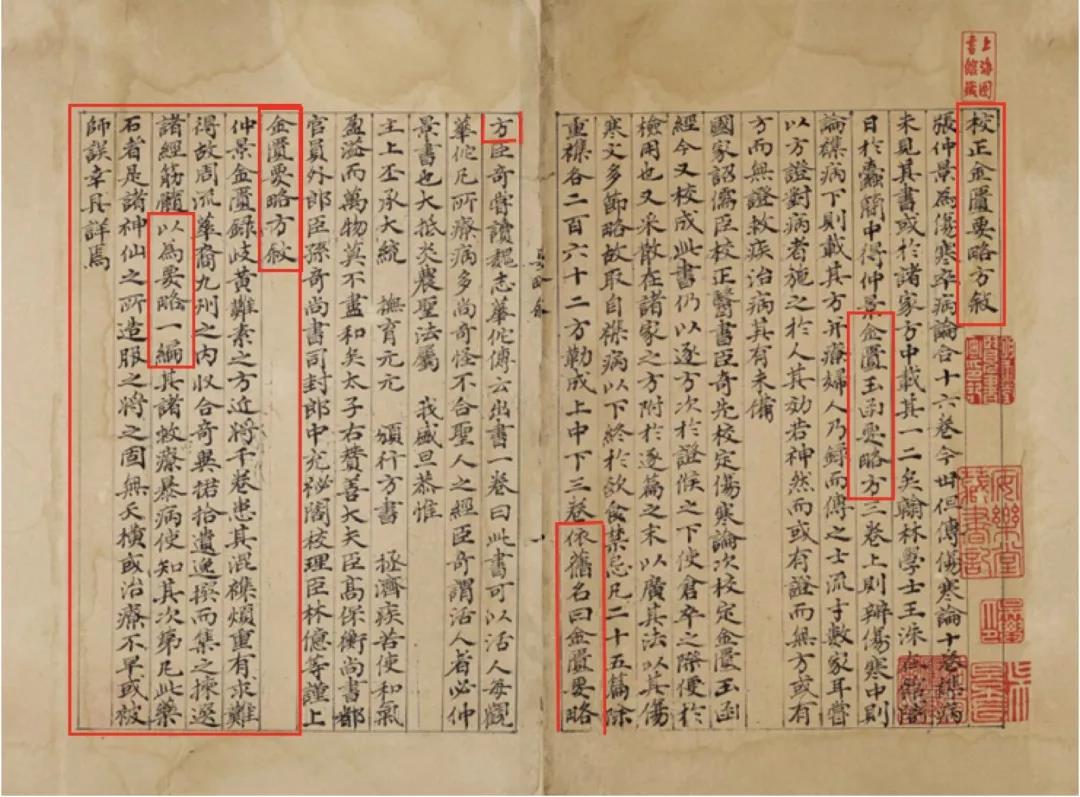 上海圖書館藏
校正金匱要略方敘
張仲景為傷寒卒病論合十六卷今世但傳傷寒論十卷雜病
未見其書或於諸家方中載其一二矣翰林學士王洙在館閣
日於蠹簡中得仲景金匱玉函要略方三卷上則辨傷寒中則
論雜病下則載其方并療婦人乃錄而傳之士流才數家耳嘗
以方證對病者施之於人其効若神然而或有證而無方或有
方而無證救疾治病其有未備
國家詔儒臣校正醫書臣奇先校定傷寒論次校定金匱玉函
經今又校成此書仍以逐方次於證候之下使倉卒之際便於
檢用也又采散在諸家之方附於逐篇之末以廣其法以其傷
寒文多節略故取自雜病以下終於飲食禁忌凡二十五篇除
重複合二百六十二方勒成上中下三卷依舊名曰金匱要略
要略敘 一
方臣奇嘗讀魏志華佗傳云出書一卷曰此書可以活人每觀
華佗凡所療病多尚奇怪不合聖人之經臣奇謂活人者必仲
景書也大抵炎農聖法屬 我盛旦恭惟
主上丕承大統 撫育元元 頒行方書 拯濟疾苦使和氣
盈溢而萬物莫不盡和矣太子右贊善大夫臣高保衡尚書都
官員外郎臣孫奇尚書司封郎中充祕閣校理臣林億等謹上
金匱要略方敘
仲景金匱錄岐黃難素之方近將千卷患其混雜煩重有求難
得故周流華裔九州之內收合奇異捃拾遺逸撰而集之揀選
諸經筋髓以為要略一編其諸救療暴病使知其次第凡此藥
石者是諸神仙之所造服之將之固無夭橫或治療不早或被
師誤幸具詳焉